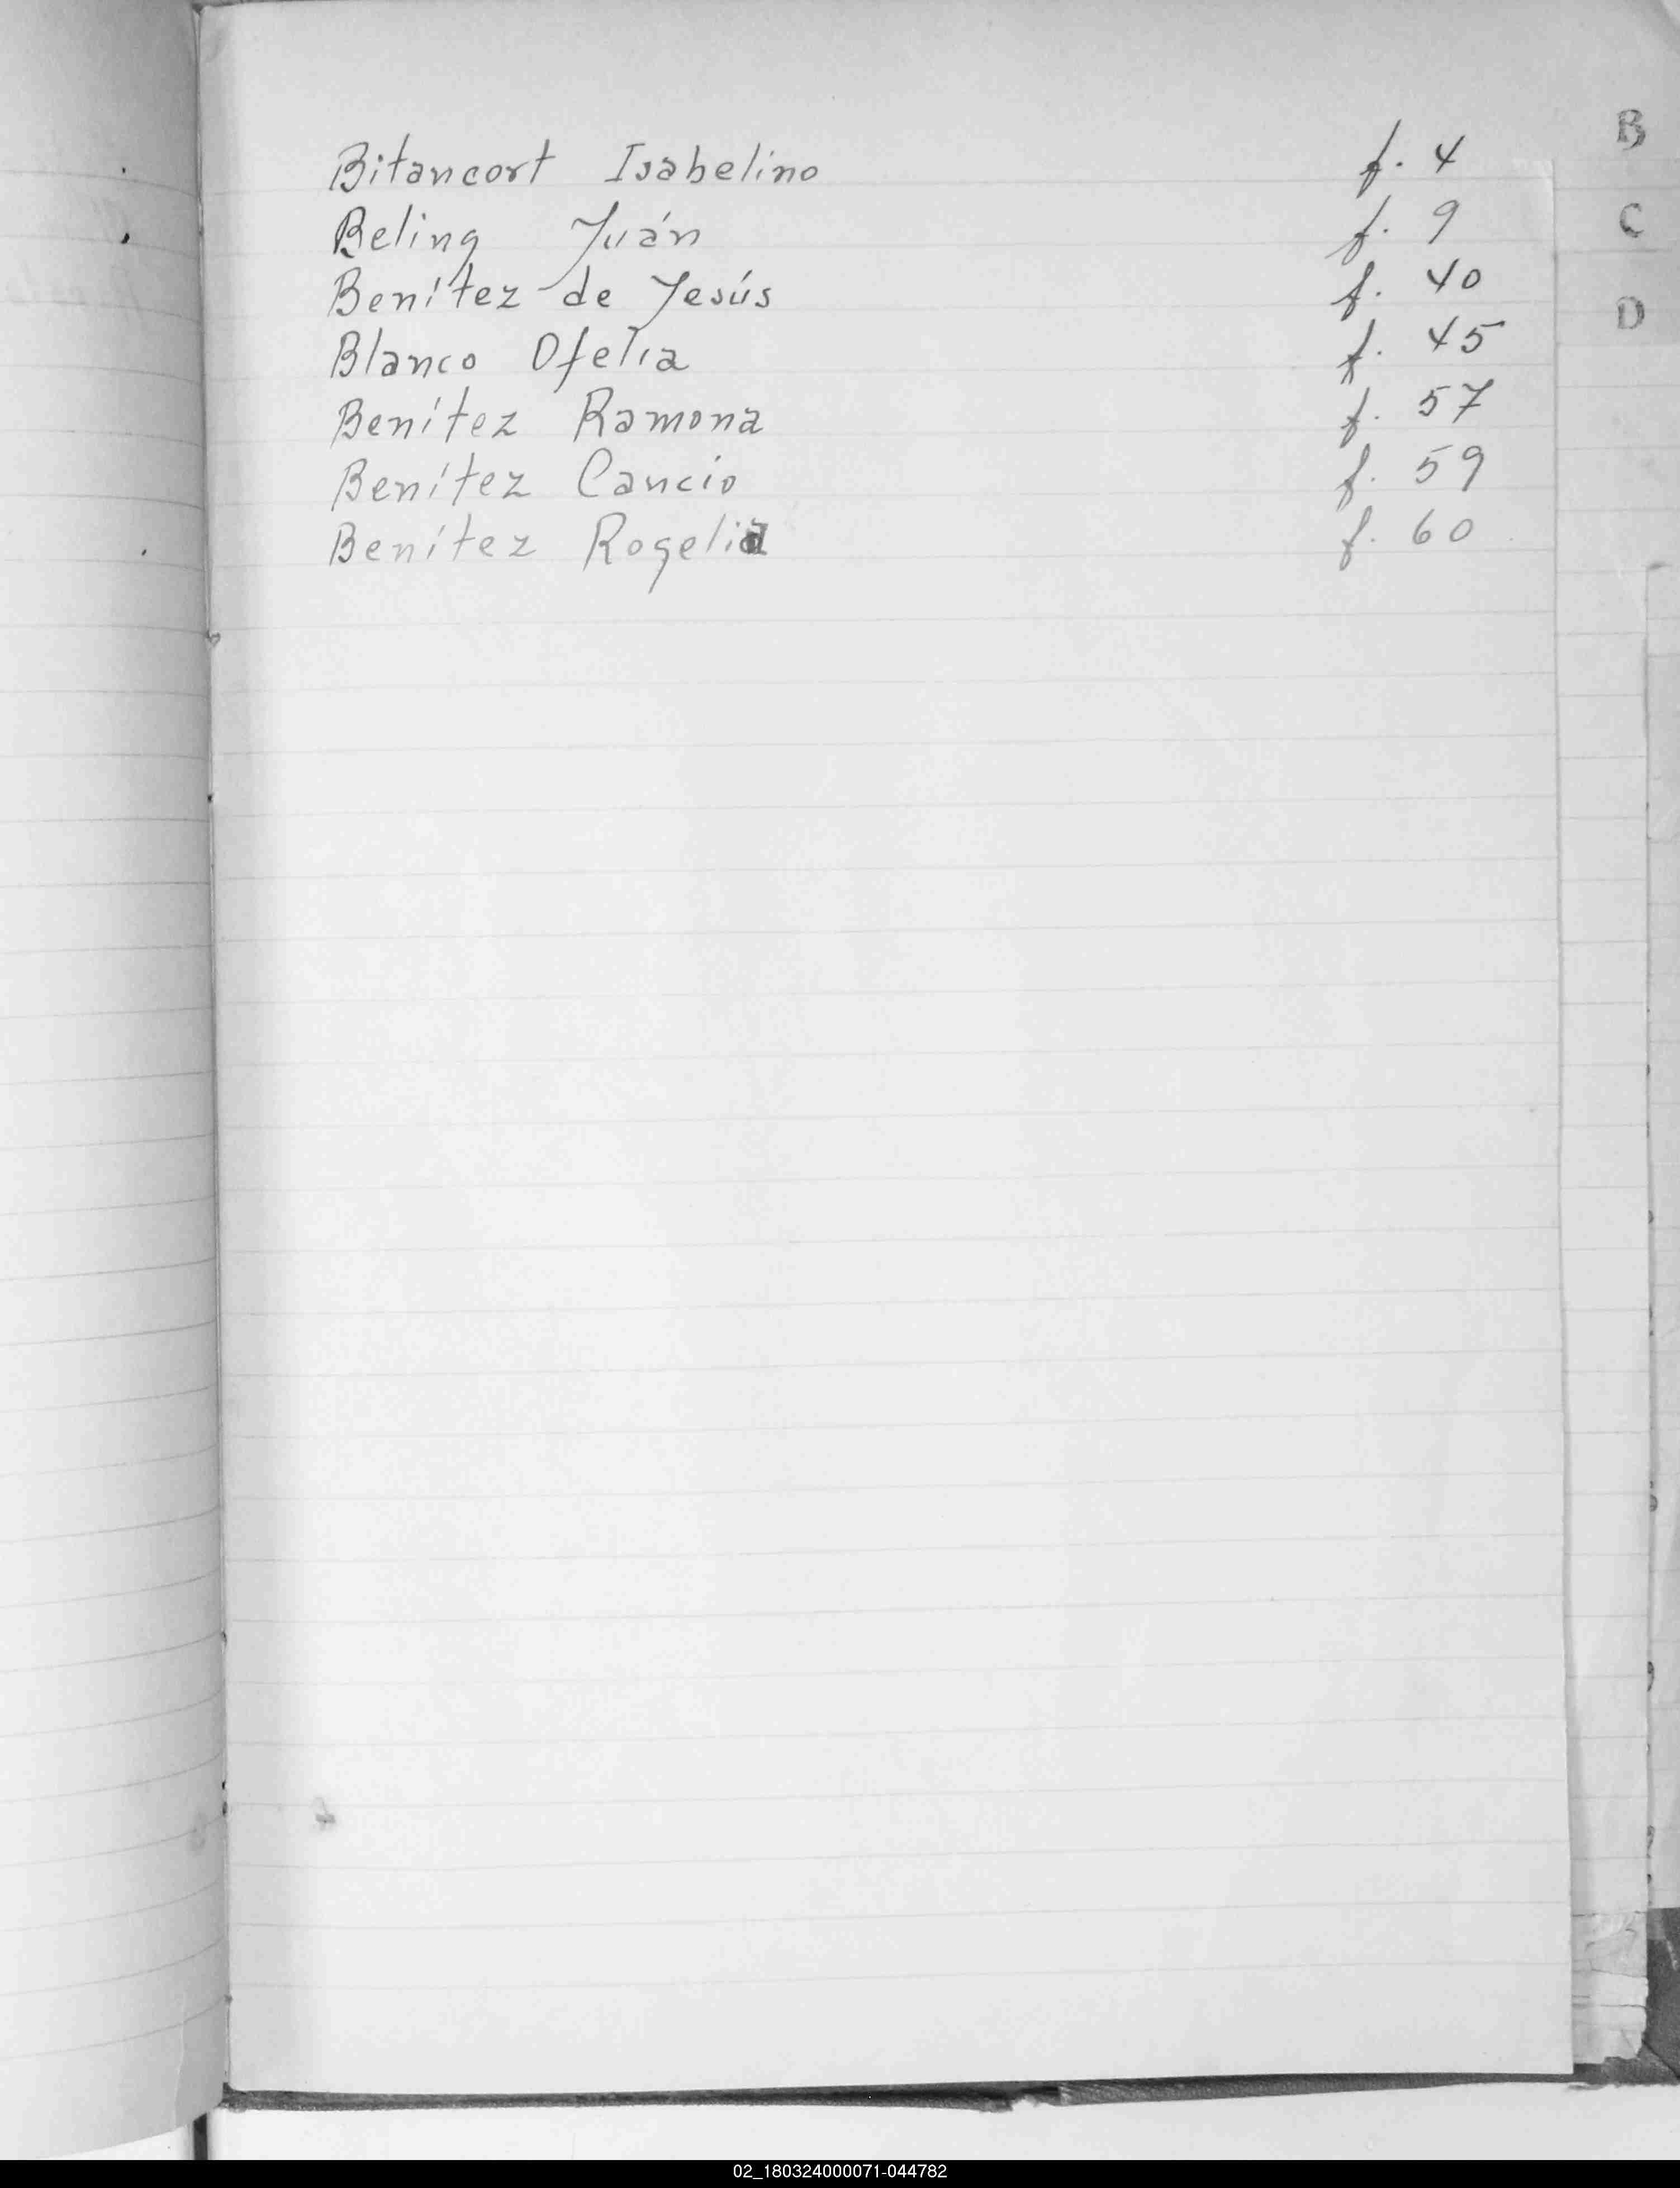 Bitancort Isabelino f. 4
Beling Juán f. 9
Benítez de Jesús f. 40
Blanco Ofelia f. 45
Benítez Ramona f. 57
Benítez Cancio f. 59
Benítez Rogelia f. 60
B
C
D
02_180324000071-044782